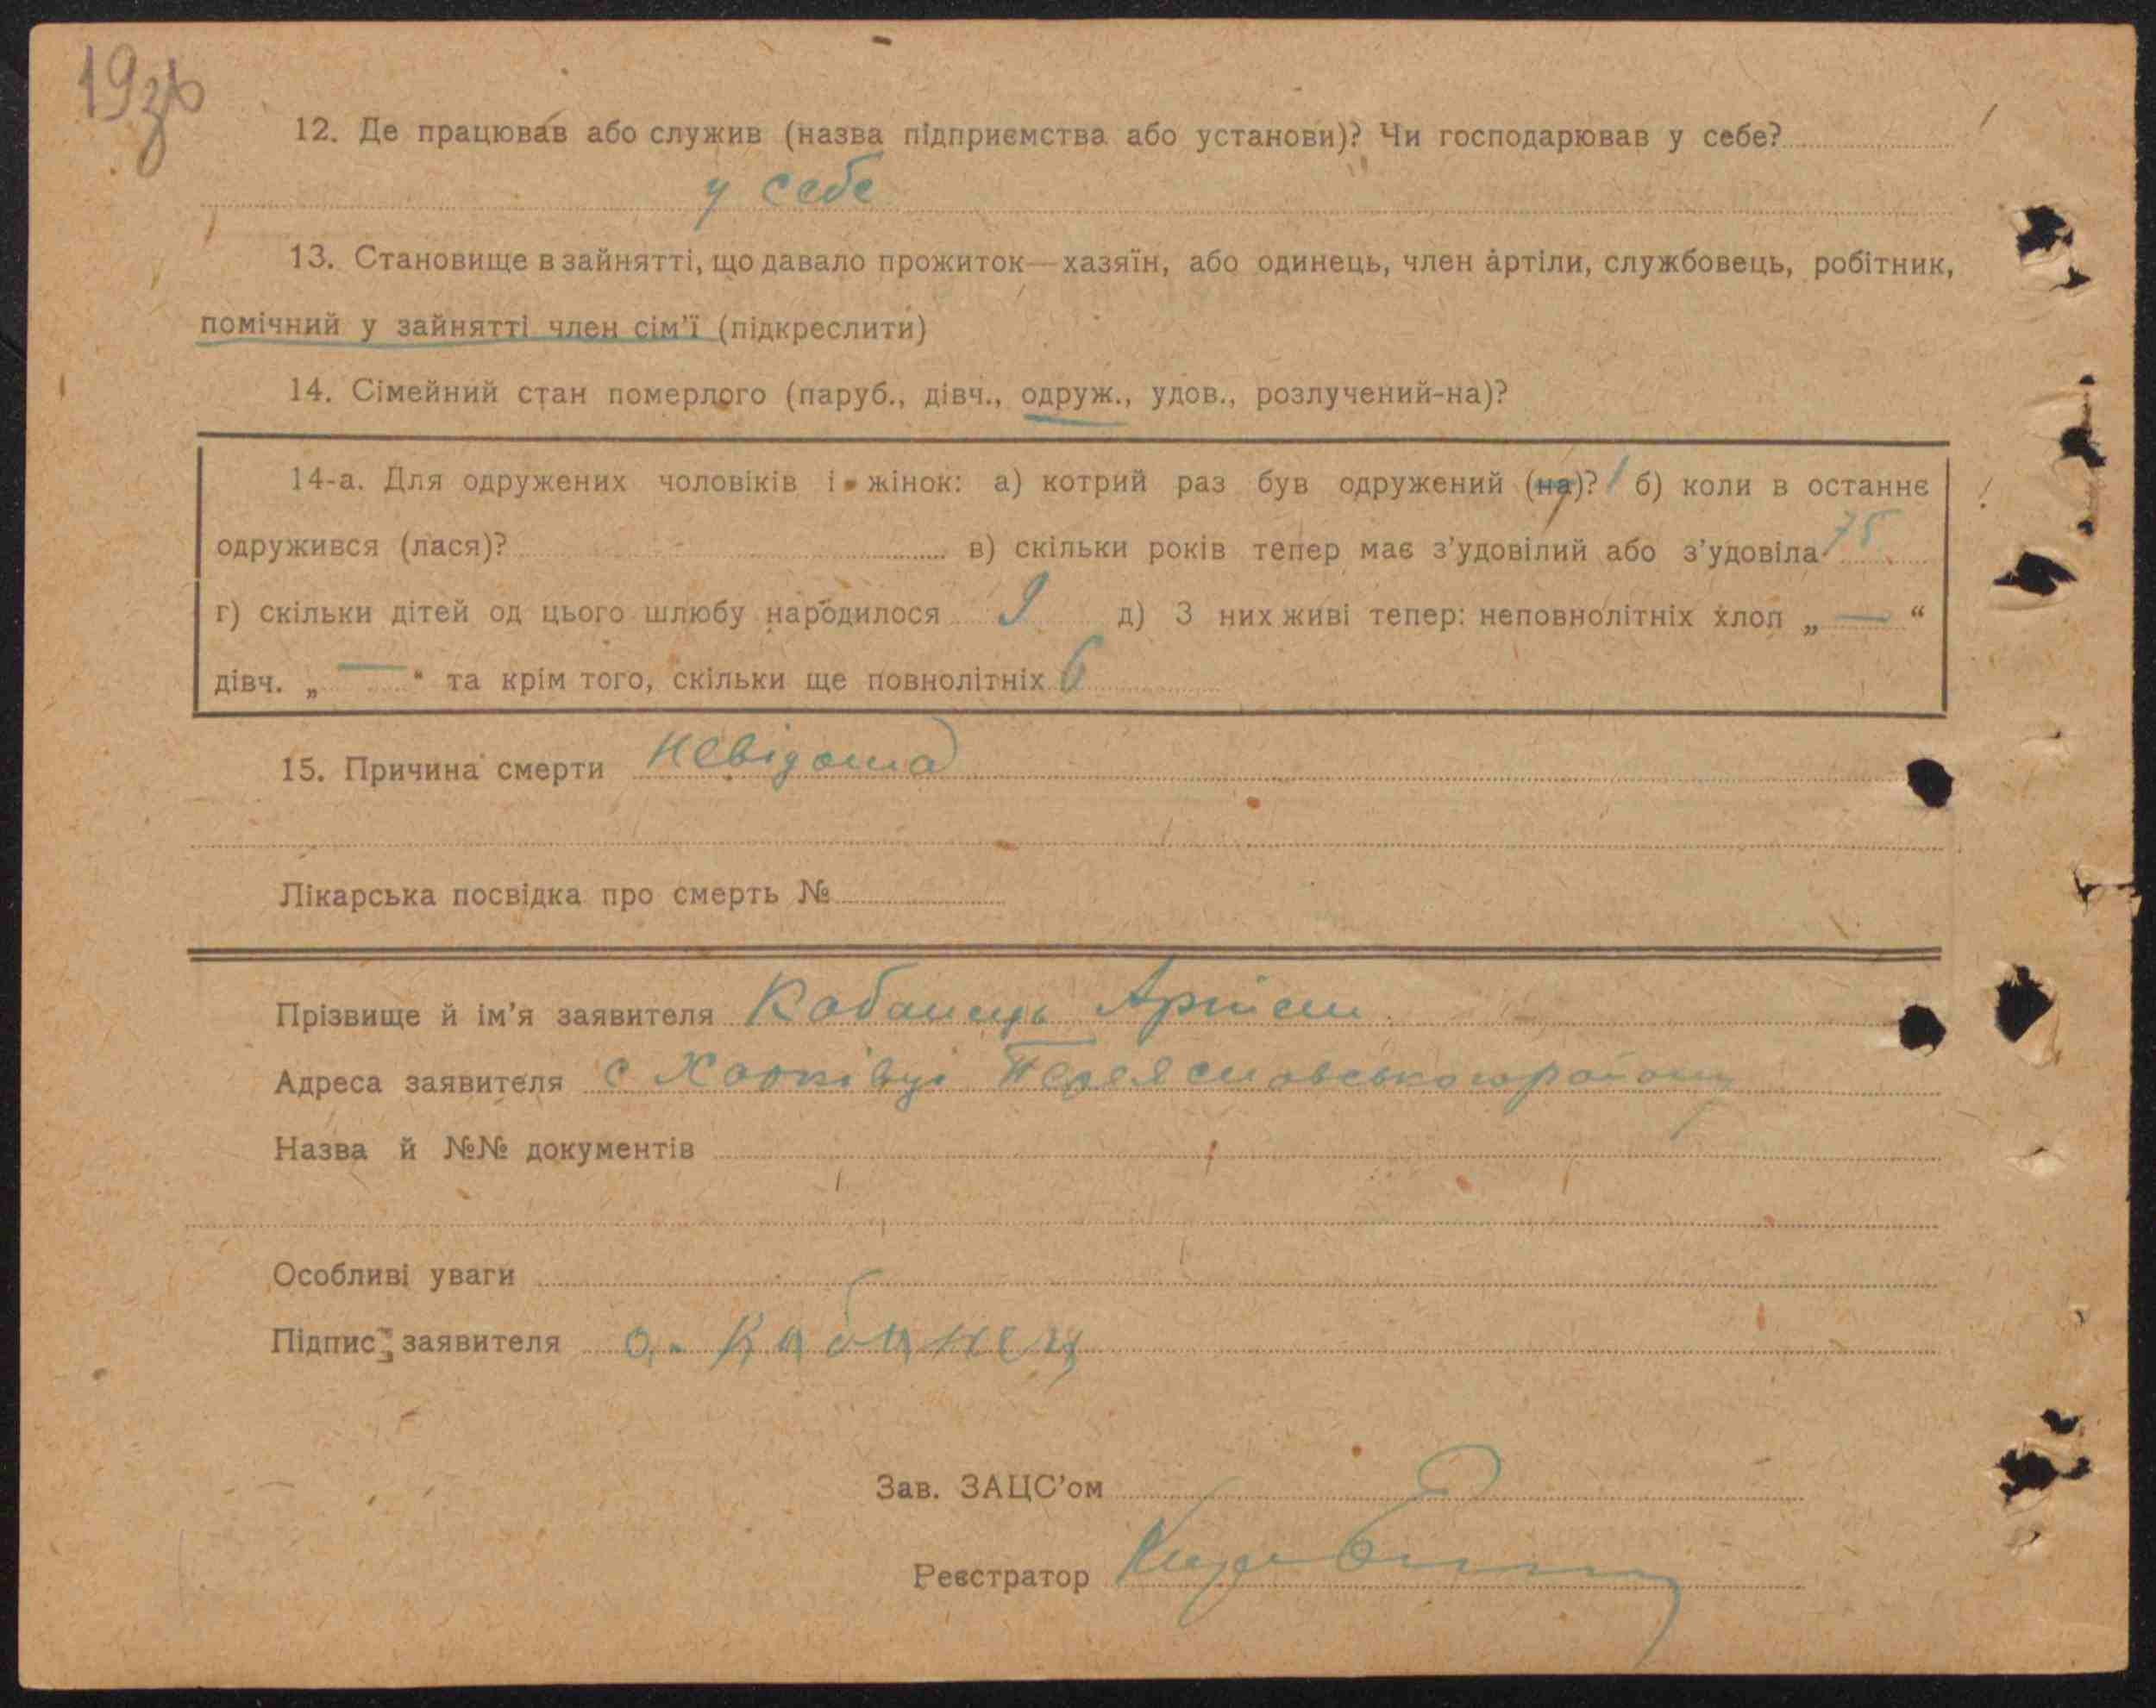 19зв
12. Де працював або служив (назва підприємства або установи)? Чи господарював у себе?
у себе
13. Становище в зайнятті, що давало прожиток—хазяїн, або одинець, член артіли, службовець, робітник,
помічний у зайнятті член сім'ї (підкреслити)
14. Сімейний стан померлого (паруб., дівч., одруж., удов., розлучений-на)?
14-а. Для одружених чоловіків і жінок: а) котрий раз був одружений (на)? 1 б) коли в останнє
одружився (лася)? в) скільки років тепер має з'удовілий або з'удовіла 75
г) скільки дітей од цього шлюбу народилося 9 д) З них живі тепер: неповнолітніх хлоп „ — “
дівч. „ — “ та крім того, скільки ще повнолітніх 6
15. Причина смерти невідома
Лікарська посвідка про смерть №
Прізвище й ім'я заявителя Кабанець Артем
Адреса заявителя с Харківці Переяславського району
Назва й №№ документів
Особливі уваги
Підпис заявителя а. Кабанец
Зав. ЗАЦС'ом
Реєстратор